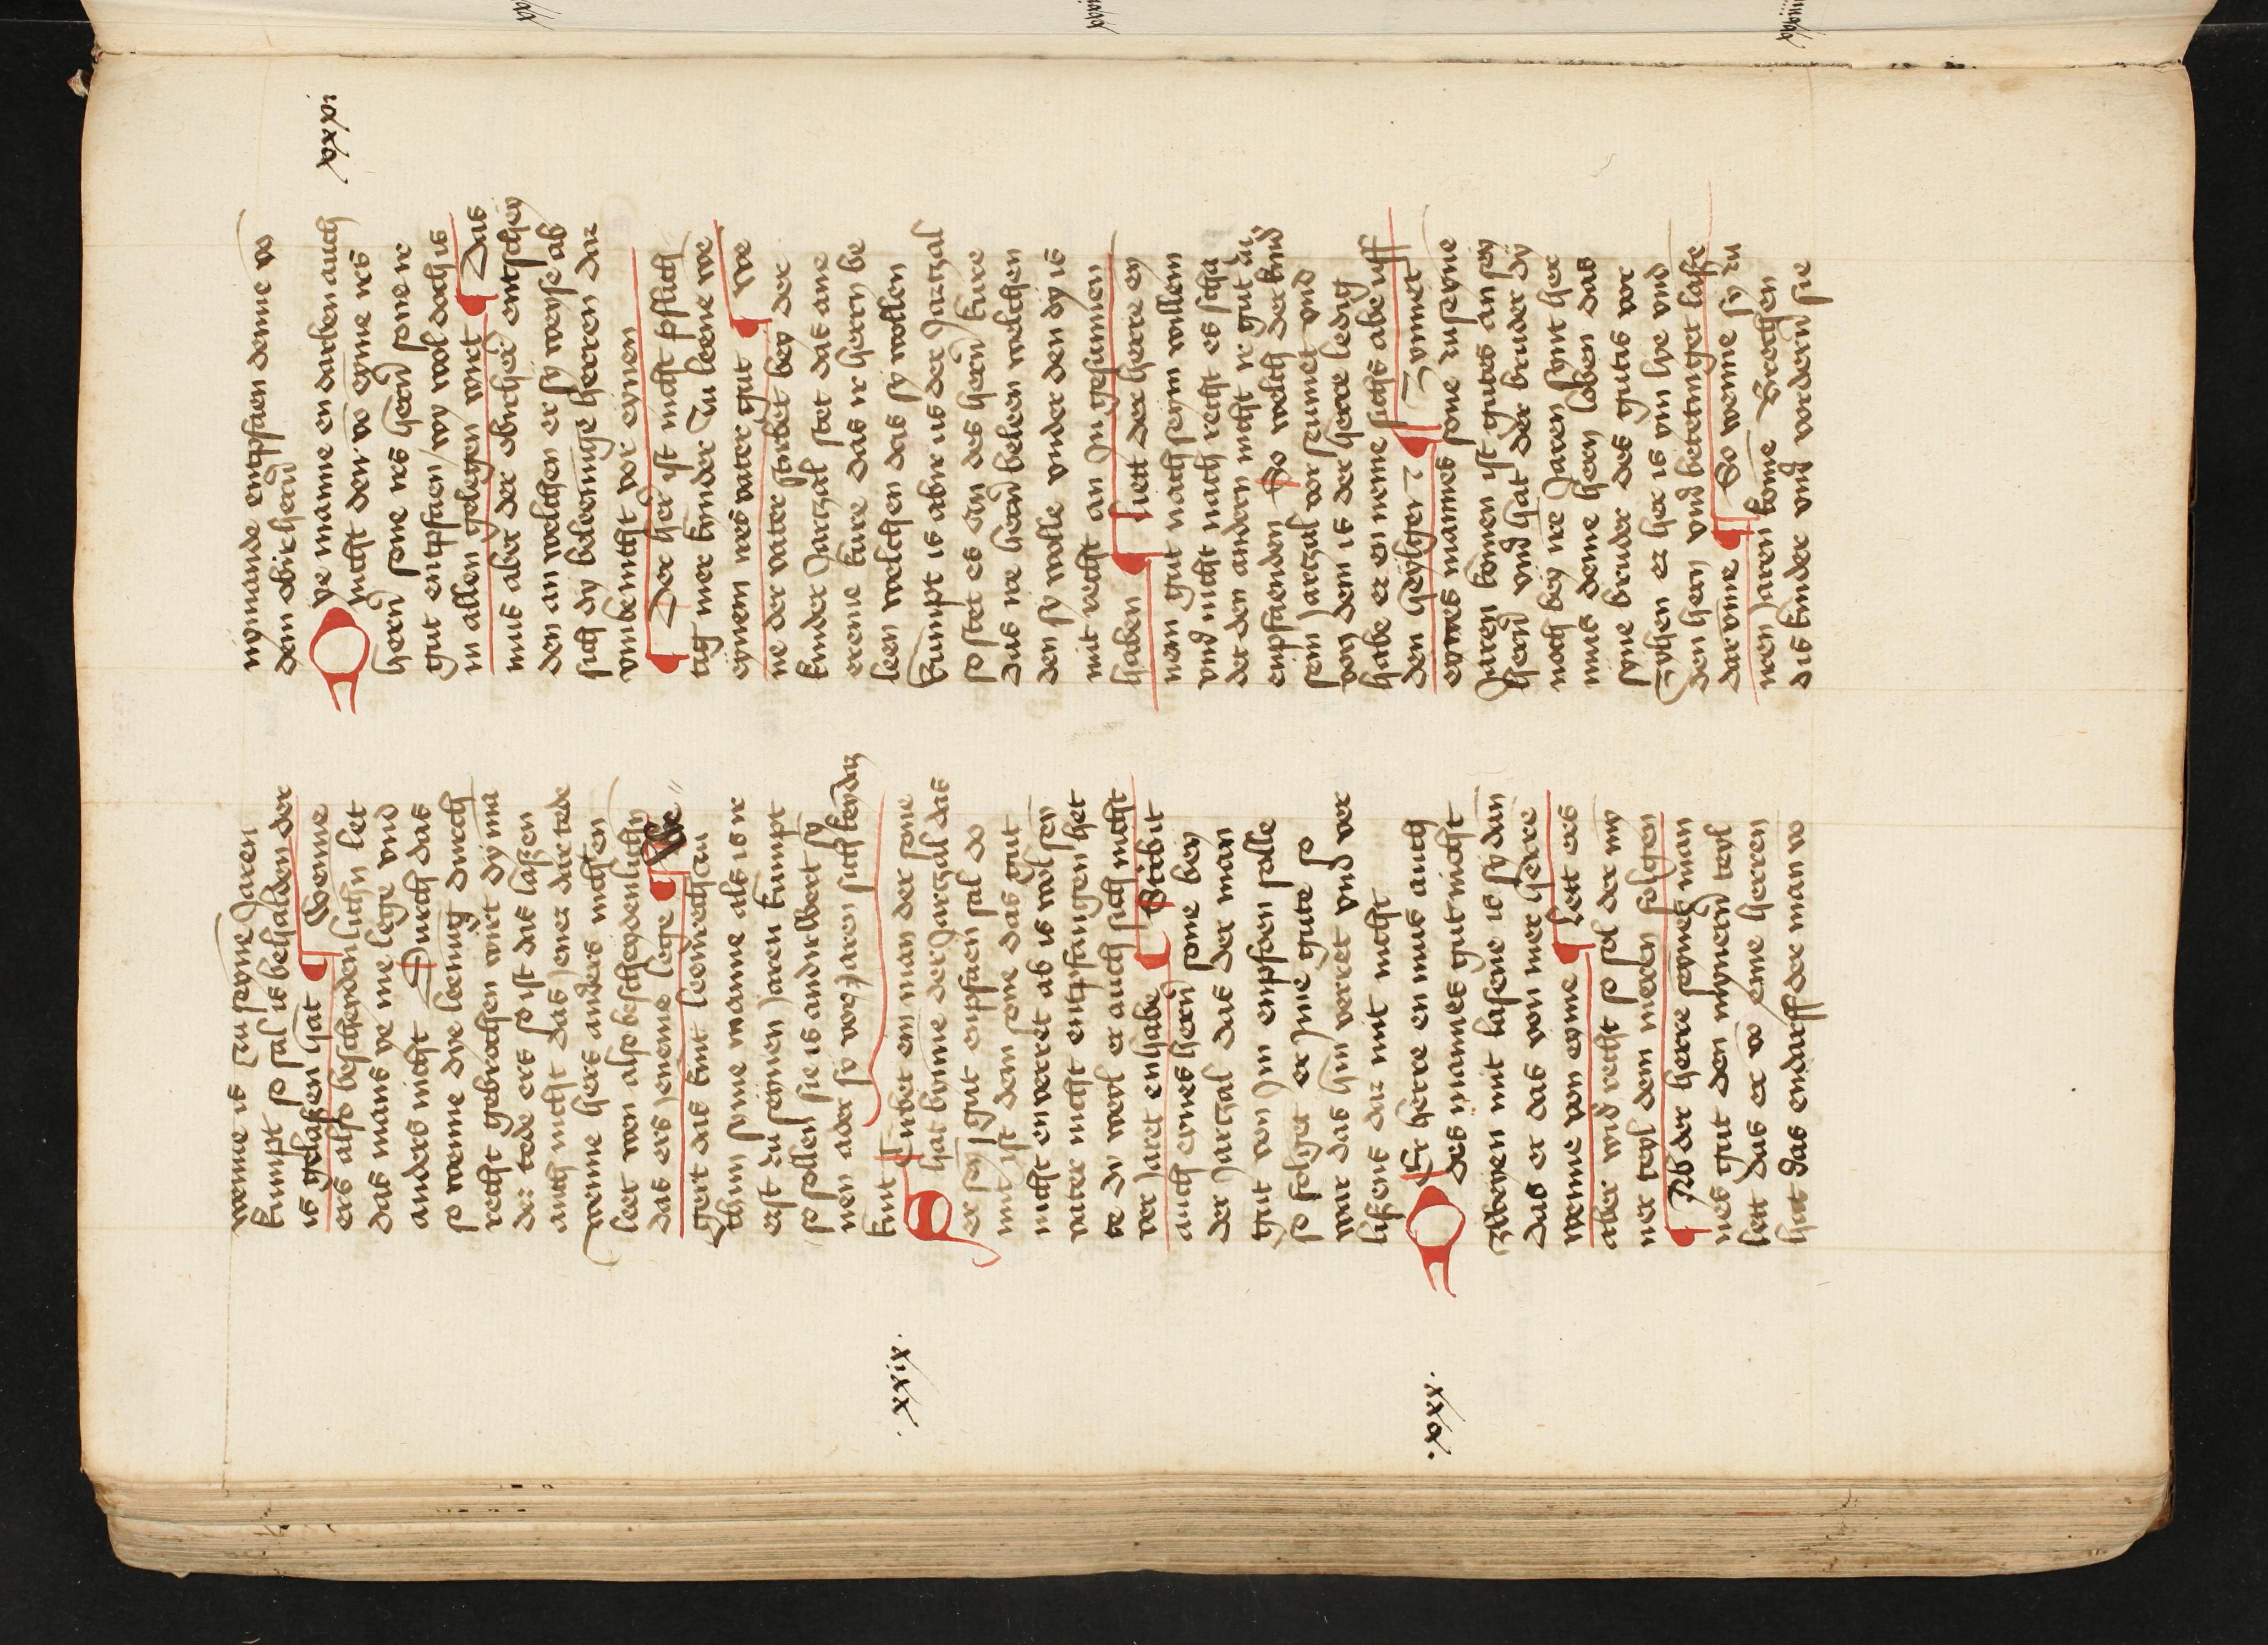 wenne is czu seyne Jaren
kumpt so sal is behalden der
is gelaßen hat Wenne
ers also bescheydenlichn let
das mans ye me lege vnd
anders nicht Durch das
so wenne dye leenug durch
recht gebrochen wirt dy ma
der tede ers so ist das laßen
auch nicht das Jener dar tede
wenne hers anders nichten
leet wen also bescheydenlichn
das ers Jeneme lege We
gert das kint leenrecht zu
thun syme manne als is ir
erst zu seynen Jaren kumpt
so sollen sie is andirwert sy
men ader sy vorJaren sich keyn dy
kint
xxix
Stirbet eim man der sone
hat bynne der Jarzal das
er seyn gut enpfaen sal do
mit ist dem sone das gut
nicht enverret ab is wol seyn
vater nicht entpfangen het
te dy weyl er auch sich nicht
ver Jaret enhabe Stirbit
auch eynes hern sone bey
der Jarzal das der man
gut von Im enpfaen solle
so folget er Jme gute so
war das hin verret vnd ver
lißens dar mit nicht
xxx
Der herre en mus auch
des mannes gut nicht
zweyen mit lasene is sy dan
das er das von mer herre
wenne von eyme Lett ers
aber wid recht so sol der myn
ner teyl dem meren folgen
Ab der herre seynes man
nes gut den mynern teyl
lett das er vo eime herren
hat das endarff der man vo
nymande entpfaen denne vo
dem obir hern
xxxi
Dye manne en durben auch
nicht den vo eyme irs
hern sone irs hern sone ir
gut entpfaen wy wol doch is
in allen gelegen wirt Das
mus aber der obirher entschey
den an welchen er sy weyse ab
sich dy beleenunge herren dar
vmbe nicht vor eynen
Der her ist nicht pflich
tig mer kinder zu leene we
eynem irs vater gut We
ne der vater stirbet bey der
kinder Jarzal stet das ane
ereme kure das ir herrn be
leen welchen das sy wollen
kumpt is abir us der Jarzal
so stet es an des hern kure
das ire hern beleen welchen
den sy wolle vnder den dy is
mit recht an In gesunnen
haben Liett der herre ey
nem gut nach seym willem
vnd nicht nach recht es scha
det den andern nicht ir gut zu
enpfaenden So welch der kind
sein Jarzal vor seumet vnd
von dem is der herre ledig
habe er en neme sichs abe uff
den heylgen Zynnet
eynes mannes sone zu seyne
Jaren komen ist gutes an sey
hern vnd hat der bruder dy
noch bey ire Jaren synt her
mus deme hern loben das
syne bruder des gutis vor
zyhen er her is ym lye vnd
den hern vnd betetunget laße
dar vmme So wenne sy zu
iren Jaren kome Brechen
dis kinder vnd vordern sie